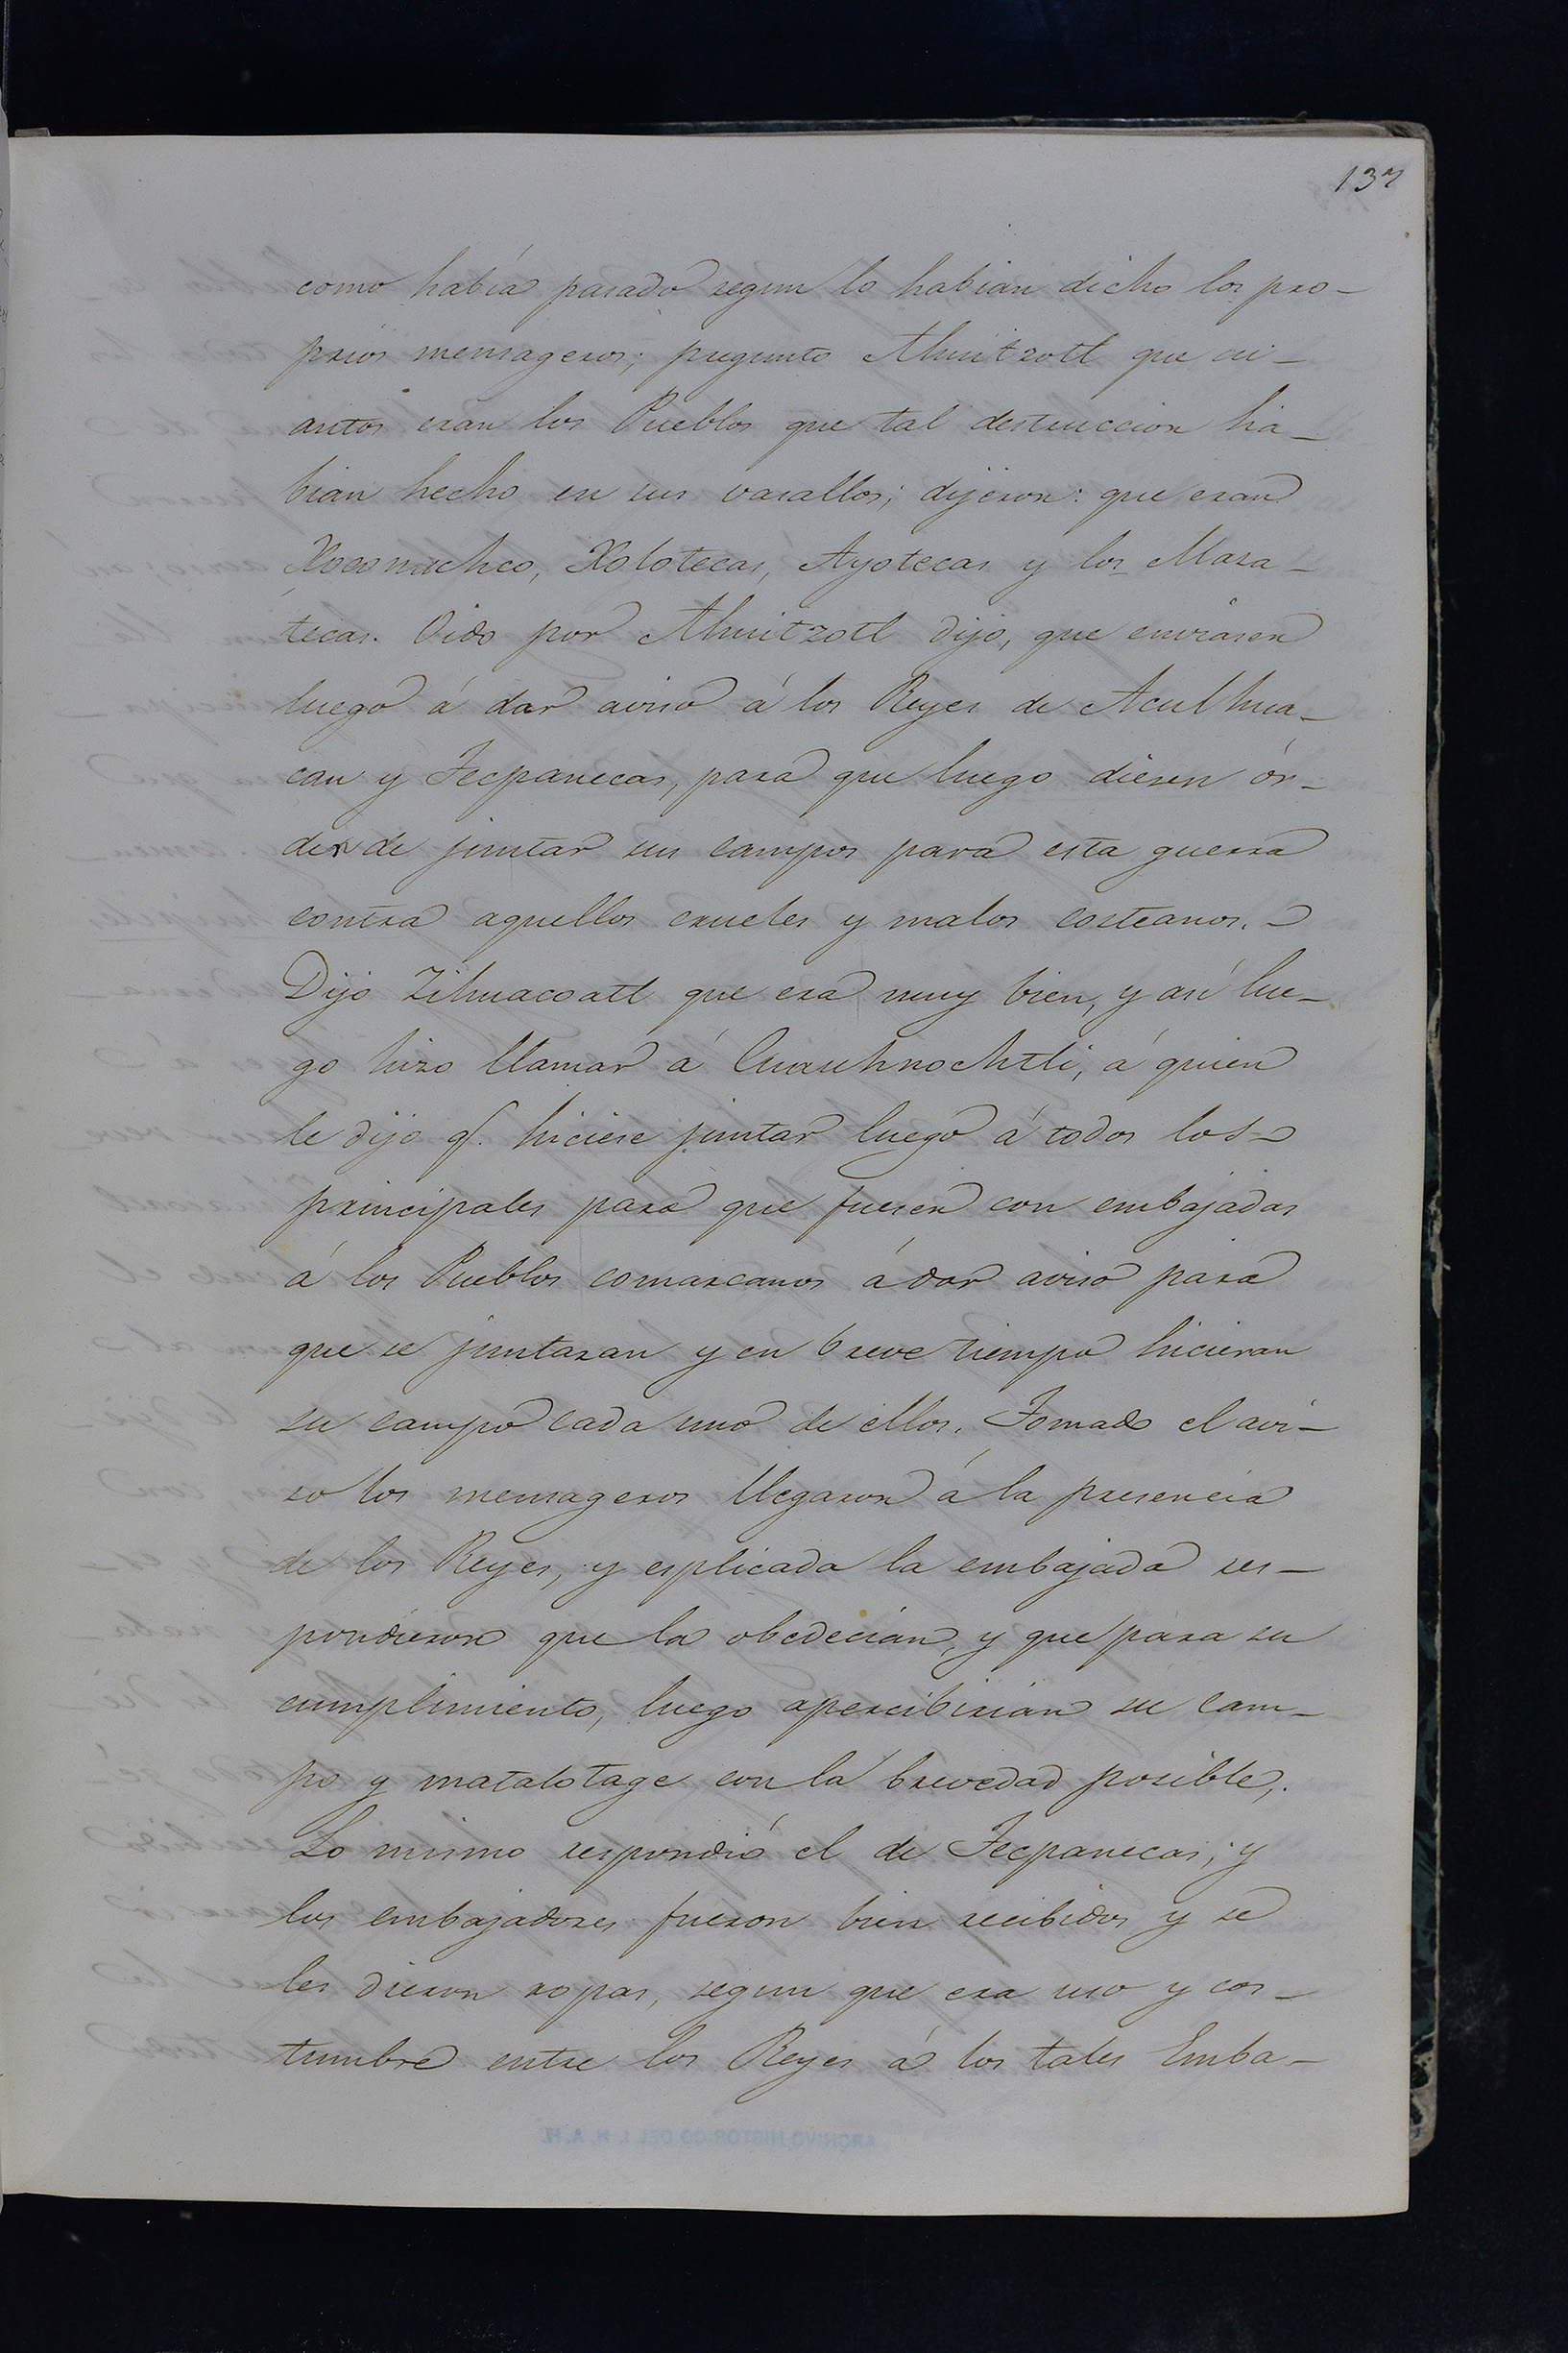 137
como había pasado segun lo habian dicho los pro-
prios mensageros; pregunto Ahuitzotl que cu-
antos eran los Pueblos que tal destruccion ha-
bian hecho en sus vasallos; dijeron: que eran
Xoconuchco, Xolotecas, Ayotecas y los Maza-
tecas. Oido por Ahuitzotl dijo, que enviasen
luego á dar aviso á los Reyes de Aculhua-
can y Tecpanecas, para que luego diesen ór-
den de juntar sus campos para esta guerra
contra aquellos crueles y malos costeanos.
Dijo Zihuacoatl que era muy bien, y así lue-
go hizo llamar á Cuauhnochtli, á quien
le dijo q. hiciese juntar luego á todos los
principales para que fuesen con embajadas
á los Pueblos comarcanos á dar aviso para
que se juntaran y en breve tiempo hicieran
su campo cada uno de ellos. Tomado el avi-
so los mensageros llegaron á la presencia
de los Reyes, y esplicada la embajada res-
pondieron que la obedecian, y que para su
cumplimiento, luego apercibirian su cam-
po y matalotage con la brevedad posible,.
Lo mismo respondió el de Tecpanecas; y
los embajadores fueron bien recibidos y se
les dieron ropas, segun que era uso y cos-
tumbre entre los Reyes á los tales Emba-
ARCHIVO HISTORICO DEL I. N. A. H.